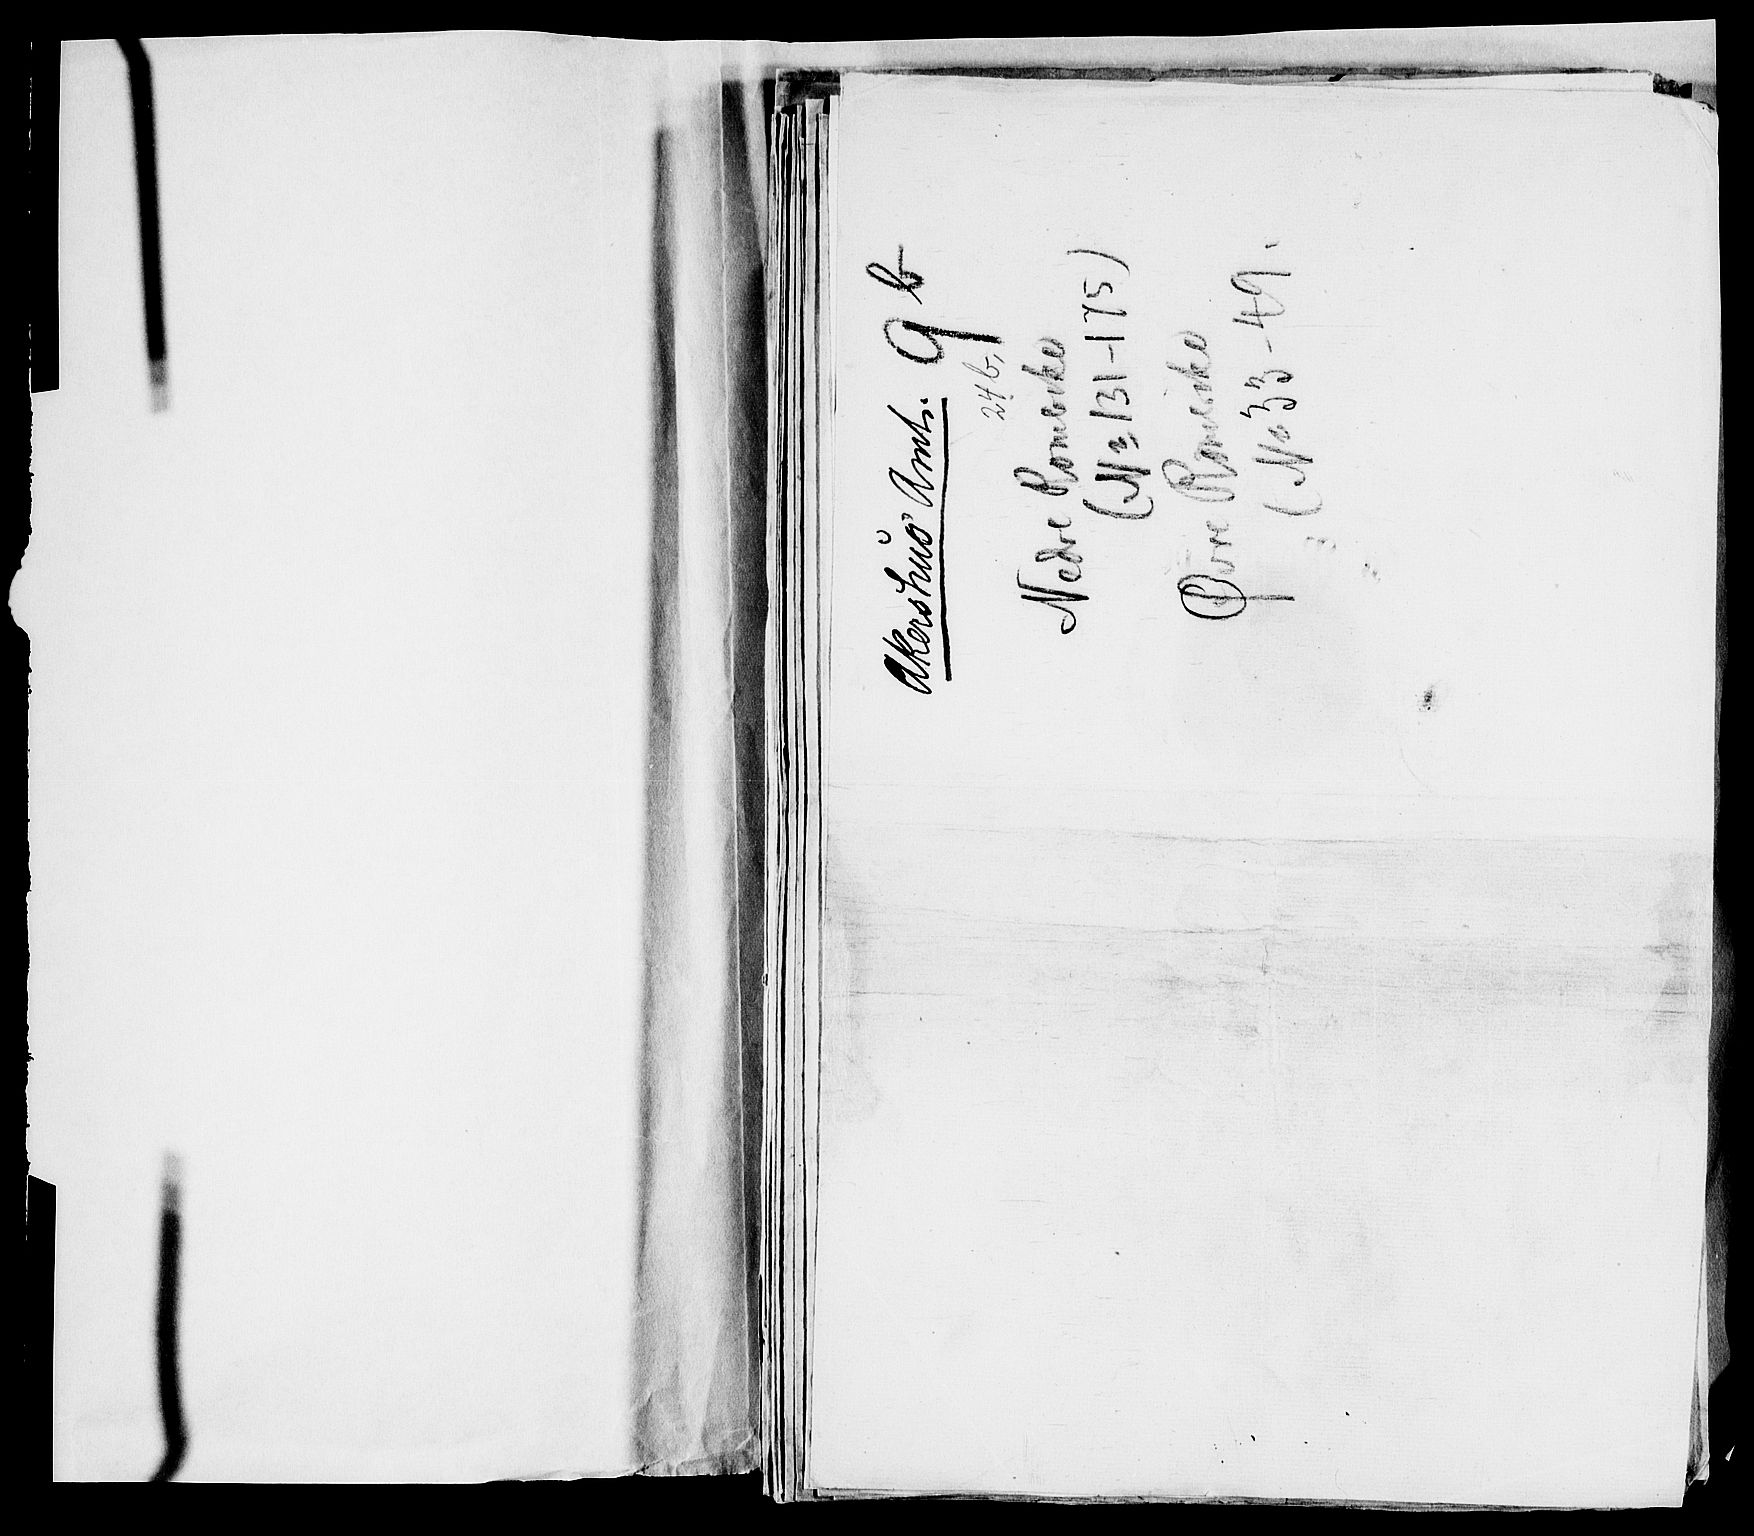 Akershus Amt. 9 b
24 b.
Nedre Romerike
(No 131-175)
Øvre Romerike
(No 33-49.